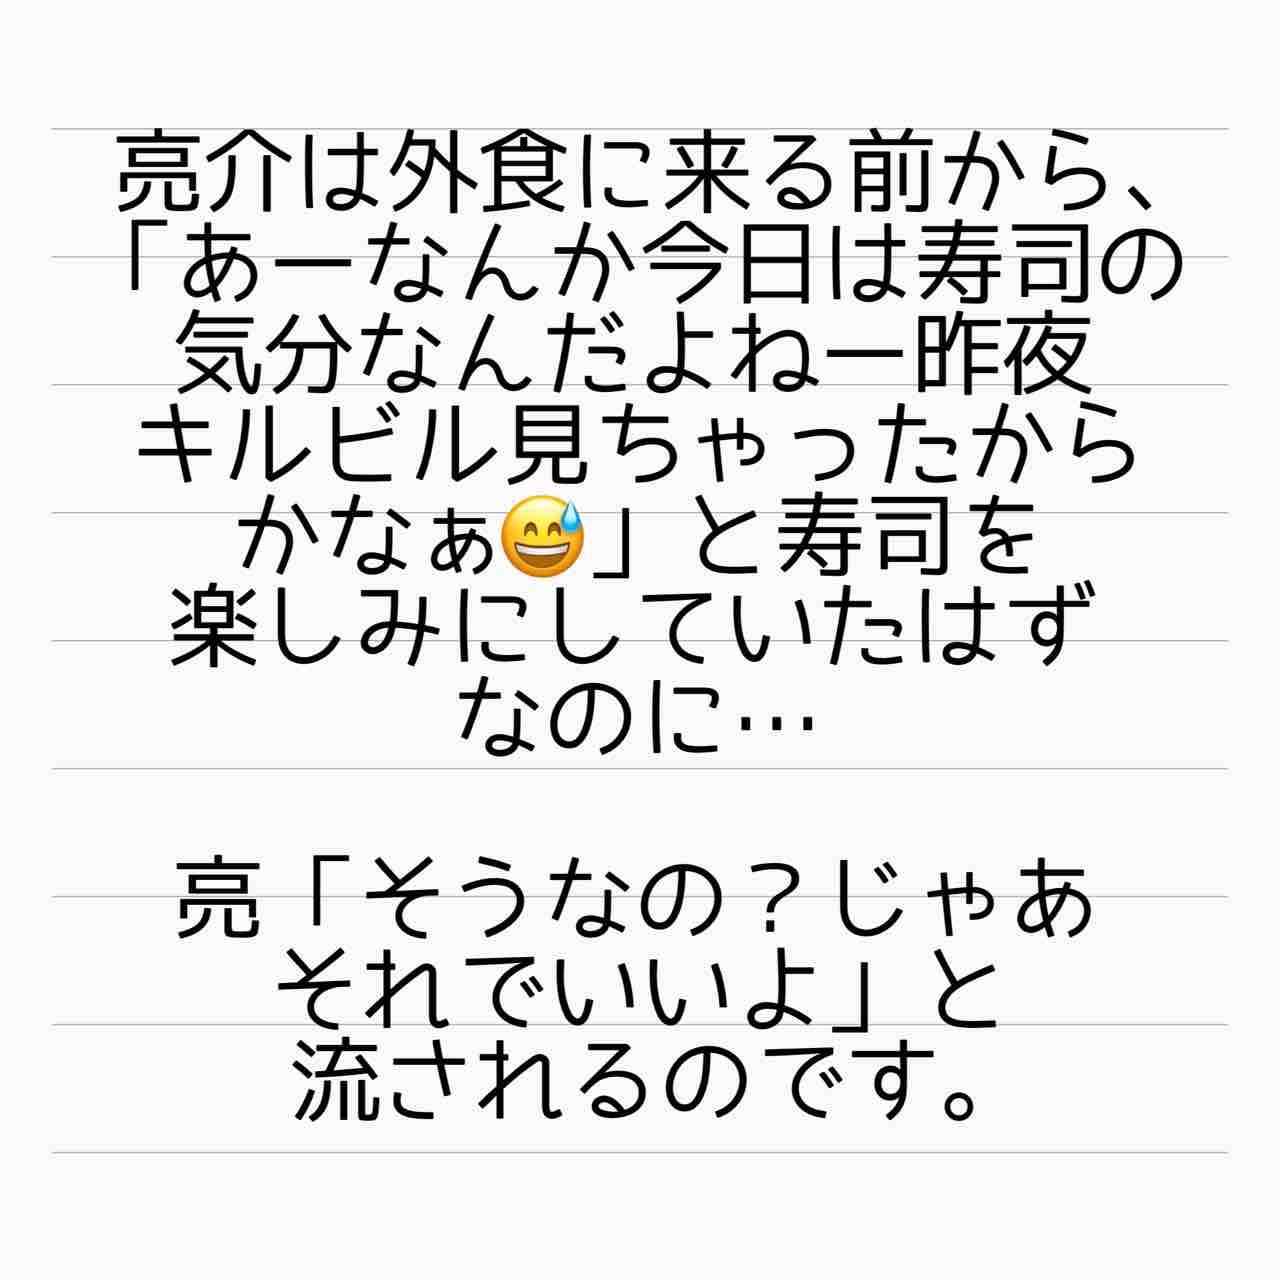 亮介は外食に来る前から、
「あーなんか今日は寿司の
気分なんだよねー昨夜
キルビル見ちゃったから
かなぁ😅」と寿司を
楽しみにしていたはず
なのに…
亮「そうなの？じゃあ
それでいいよ」と
流されるのです。